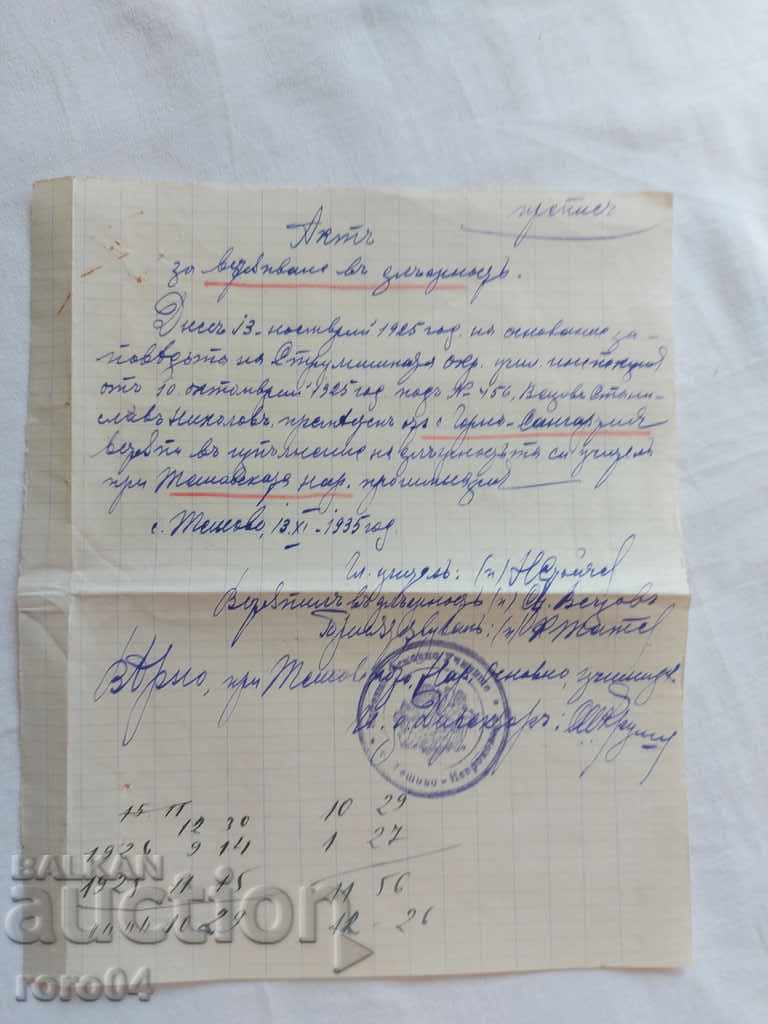 преписъ
Актъ
за встѫпване въ длъжность.
Днесъ 13 ноемврий 1925 год. на основание за-
повѣдьта на Струмишката окр. учил. инспекция
отъ 10 октомврий 1925 год подъ № 456, Вецовъ Стани-
славъ Николовъ, преведенъ отъ с. Горна-Сингартия
встѫпи въ изпълнение на длъжностьта си учитель
при Тешовската нар. прогимназия
с. Тешово, 13.XI.1935 год.
Гл. учитель: (п)
Встѫпилъ въ длъжность (п) Ст. Вецовъ
(п)
Вѣрно, при Тешовското Нар. Основно, училище
Директоръ:
Тешово - Неврокоп
15 11
12 30
1926 9 14
1925 11 15
10 29
10 29
1 27
11 56
12 - 26
BALKAN
auction
roro04